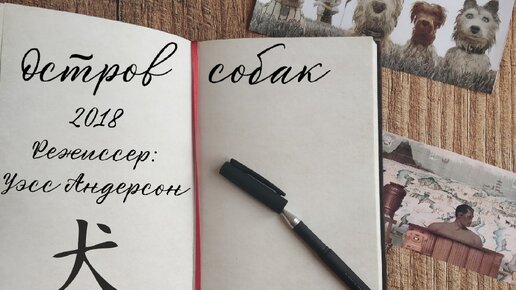 Остров собак
2018
Режиссер:
Уэсс Андерсон
犬